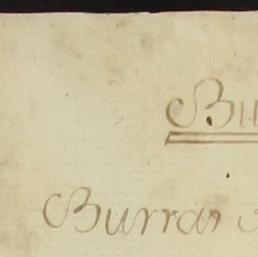 Bu
Burras